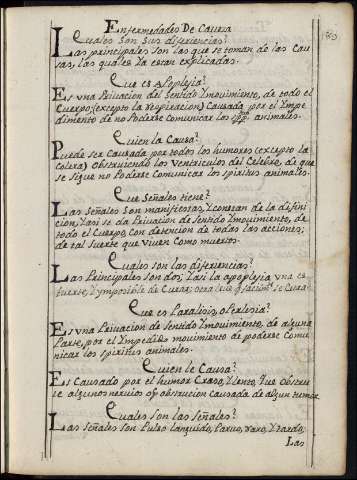 Enfermedades De Caveza
Quales Son Sus diferencias?
Las principales son las que se toman de las Cau
sas, las quales ya estan explicadas.
Que es Aplopejia?
Es vna Priuacion del Sentido Ymouimiento, de todo el
Cuerpo (excepto la Respiracion) Causada por el Ympe
dimento de no Poderse Comunicar los spûs animales.
Quien la Causa?
Puede ser Causada por todos los humores (excepto la
Colera) Obstruiendo los Ventriculos del Celebro, de que
se sigue no Poderse Comunicar los spiritus animales.
Que Señales tiene?
Las Señales Son manifiestas, Y constan de la defini
cion, Y asi se da Priuacion de Sentido Ymouimiento, de
todo el Cuerpo, con detencion de todas las acciones;
de tal Suerte que viuen Como muertos.
Quales son las diferencias?
Las Principales son dos; Y asi la apoplejia una es
fuerte, Y ymposible de Curar; otra leue q facilmte se Cura.
Que es Paralisis, o Perlesia?
Es vna Priuacion de Sentido Ymouimiento, de alguna
Parte, por el Ympedido movimiento de poderse Comu
nicar los spiritus animales.
Quien le Causa?
Es Causado por el humor Craso, Y lento, que obstru
ie algunos neruios o pr obstrucion causada de algun humor.
Quales son las Señales?
Las Señales son Pulso languido, Paruo, raro, Y tardo;
Las